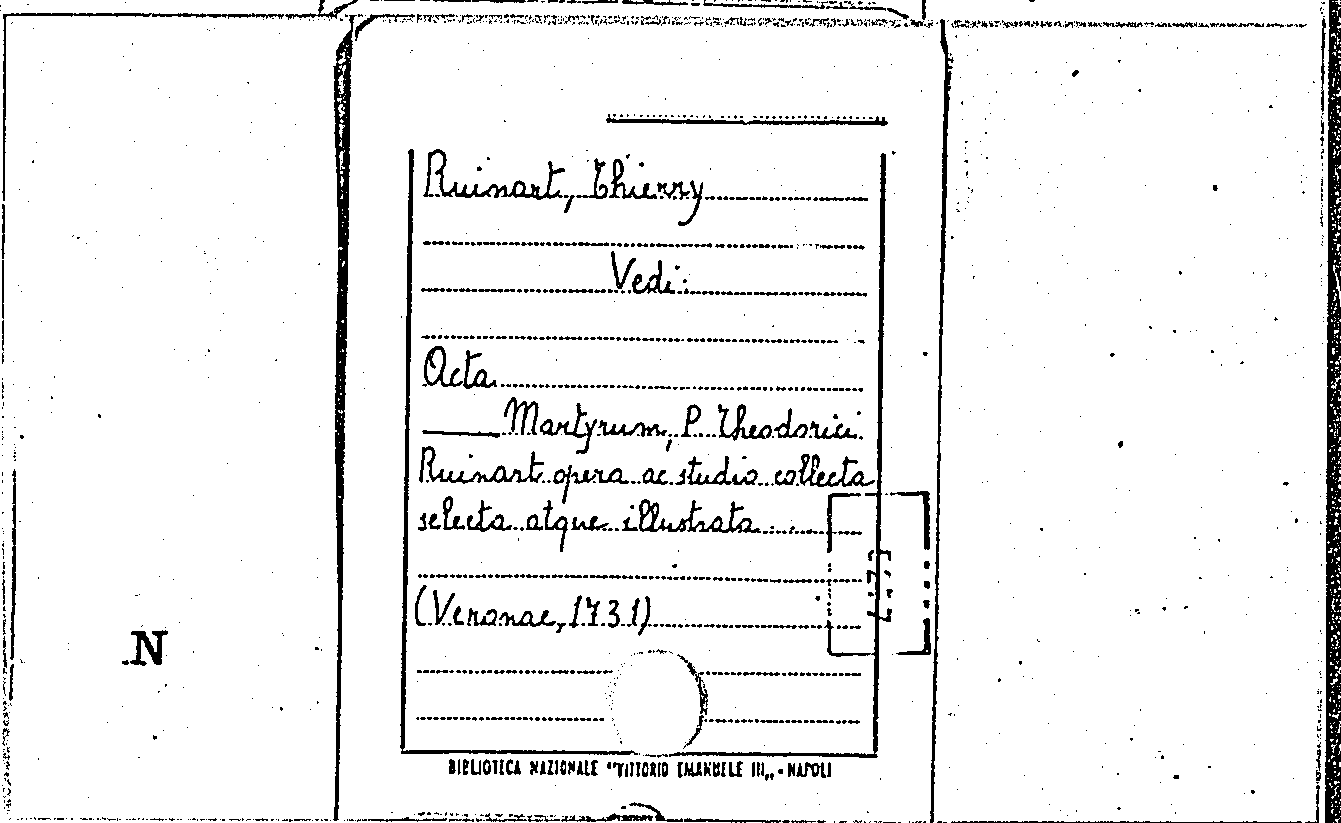 Ruinart, Thierry
Vedi:
Acta
____ Martyrum, P. Theodorici
Ruinart opera ac studio collecta
selecta atque illustrata ...
(Veronae, 1731)
N
BIBLIOTECA NAZIONALE "VITTORIO EMANUELE III„ - NAPOLI